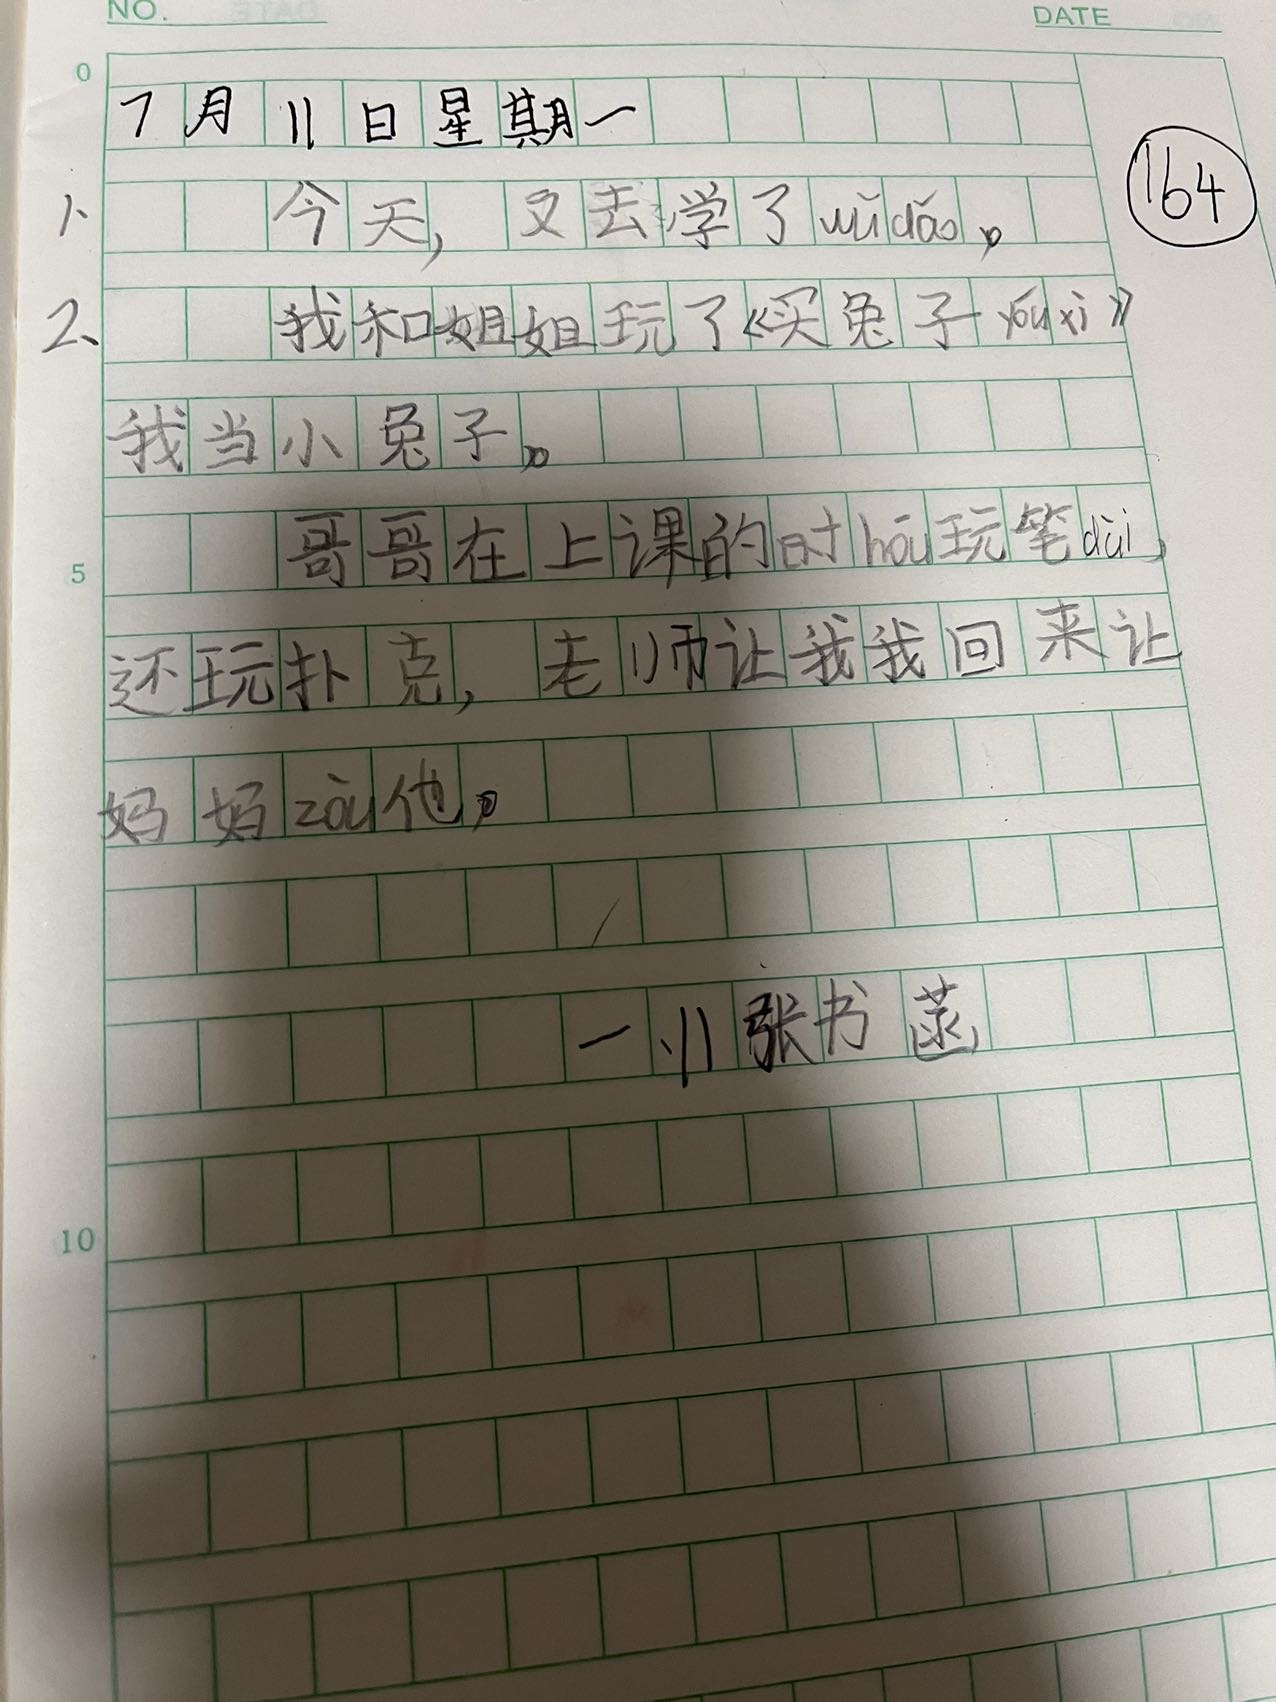 NO.
DATE
0
7月11日星期一
164
1、今天，又去学了wǔdǎo。
2、我和姐姐玩了《买兔子yóuxì》
我当小兔子。
5
哥哥在上课的时hòu玩笔dài，
还玩扑克，老师让我我回来让
妈妈zòu他。
一.11张书菡
10